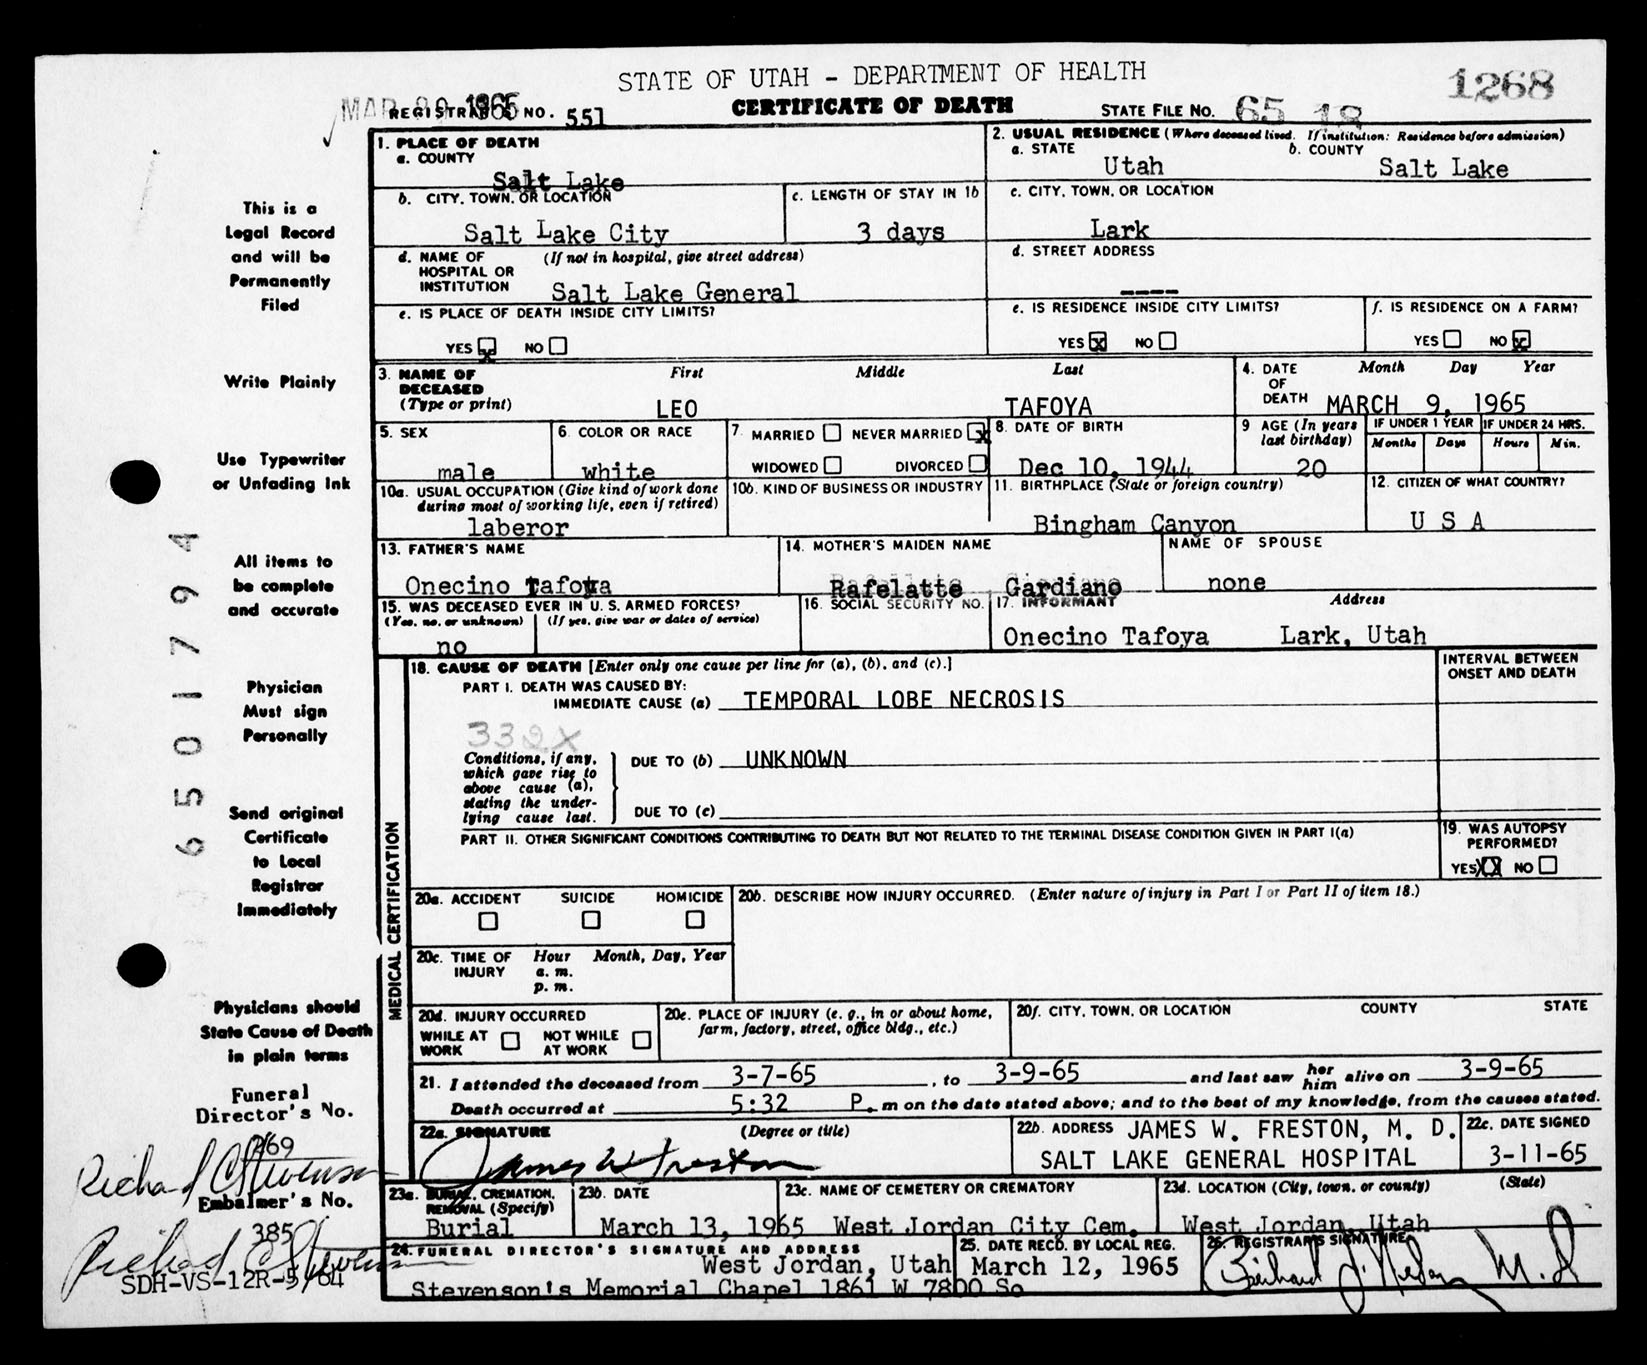 STATE OF UTAH - DEPARTMENT OF HEALTH
1268
MAR 1965
REGISTRAR'S NO. 551
CERTIFICATE OF DEATH
STATE FILE NO. 65 18
1. PLACE OF DEATH
a. COUNTY
Salt Lake
2. USUAL RESIDENCE (Where deceased lived. If institution: Residence before admission)
a. STATE b. COUNTY
Utah Salt Lake
b. CITY, TOWN, OR LOCATION
Salt Lake City
c. LENGTH OF STAY IN 1b
3 days
c. CITY, TOWN, OR LOCATION
Lark
d. NAME OF HOSPITAL OR INSTITUTION (If not in hospital, give street address)
Salt Lake General
d. STREET ADDRESS
----
e. IS PLACE OF DEATH INSIDE CITY LIMITS?
YES X NO
e. IS RESIDENCE INSIDE CITY LIMITS?
YES X NO
f. IS RESIDENCE ON A FARM?
YES NO X
3. NAME OF DECEASED (Type or print)
First Middle Last
LEO TAFOYA
4. DATE OF DEATH Month Day Year
MARCH 9, 1965
5. SEX
male
6. COLOR OR RACE
white
7. MARRIED NEVER MARRIED X
WIDOWED DIVORCED
8. DATE OF BIRTH
Dec 10, 1944
9 AGE (In years last birthday)
20
IF UNDER 1 YEAR
Months Days
IF UNDER 24 HRS.
Hours Min.
10a. USUAL OCCUPATION (Give kind of work done during most of working life, even if retired)
laberor
10b. KIND OF BUSINESS OR INDUSTRY
11. BIRTHPLACE (State or foreign country)
Bingham Canyon
12. CITIZEN OF WHAT COUNTRY?
U S A
13. FATHER'S NAME
Onecino Tafoya
14. MOTHER'S MAIDEN NAME
Rafelatte Gardiano
NAME OF SPOUSE
none
15. WAS DECEASED EVER IN U.S. ARMED FORCES?
(Yes, no, or unknown) (If yes, give war or dates of service)
no
16. SOCIAL SECURITY NO.
17. INFORMANT Address
Onecino Tafoya Lark, Utah
MEDICAL CERTIFICATION
18. CAUSE OF DEATH [Enter only one cause per line for (a), (b), and (c).]
INTERVAL BETWEEN ONSET AND DEATH
PART I. DEATH WAS CAUSED BY:
IMMEDIATE CAUSE (a) TEMPORAL LOBE NECROSIS
332X
Conditions, if any, which gave rise to above cause (a), stating the underlying cause last.
DUE TO (b) UNKNOWN
DUE TO (c)
PART II. OTHER SIGNIFICANT CONDITIONS CONTRIBUTING TO DEATH BUT NOT RELATED TO THE TERMINAL DISEASE CONDITION GIVEN IN PART I(a)
19. WAS AUTOPSY PERFORMED?
YES X NO
20a. ACCIDENT SUICIDE HOMICIDE
20b. DESCRIBE HOW INJURY OCCURRED. (Enter nature of injury in Part I or Part II of item 18.)
20c. TIME OF INJURY Hour Month, Day, Year
a. m.
p. m.
20d. INJURY OCCURRED
WHILE AT WORK NOT WHILE AT WORK
20e. PLACE OF INJURY (e. g., in or about home, farm, factory, street, office bldg., etc.)
20f. CITY, TOWN, OR LOCATION COUNTY STATE
21. I attended the deceased from 3-7-65, to 3-9-65 and last saw her him alive on 3-9-65
Death occurred at 5:32 P. m on the date stated above; and to the best of my knowledge, from the causes stated.
22a. SIGNATURE (Degree or title)
James W Freston
22b. ADDRESS JAMES W. FRESTON, M. D.
SALT LAKE GENERAL HOSPITAL
22c. DATE SIGNED
3-11-65
23a. BURIAL, CREMATION, REMOVAL (Specify)
Burial
23b. DATE
March 13, 1965
23c. NAME OF CEMETERY OR CREMATORY
West Jordan City Cem.
23d. LOCATION (City, town, or county) (State)
West Jordan, Utah
24. FUNERAL DIRECTOR'S SIGNATURE AND ADDRESS
West Jordan, Utah
Stevenson's Memorial Chapel 1861 W 7800 So
25. DATE RECD. BY LOCAL REG.
March 12, 1965
26. REGISTRAR'S SIGNATURE
M.D
This is a
Legal Record
and will be
Permanently
Filed
Write Plainly
Use Typewriter
or Unfading Ink
All items to
be complete
and accurate
Physician
Must sign
Personally
Send original
Certificate
to Local
Registrar
Immediately
Physicians should
State Cause of Death
in plain terms
Funeral
Director's No.
269
Richard C Stevenson
Embalmer's No.
385
Richard C Stevenson
SDH-VS-12R-5/64
6501794